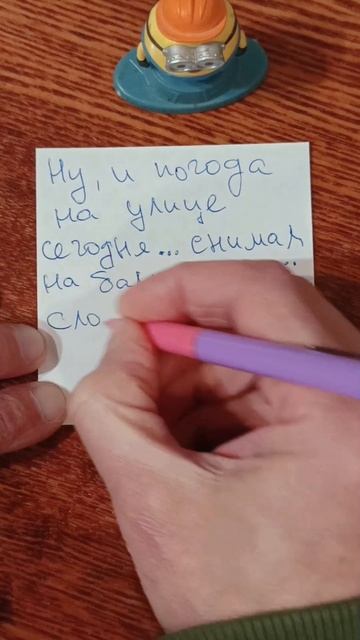 Ну, и погода
на улице
сегодня... снимал
на